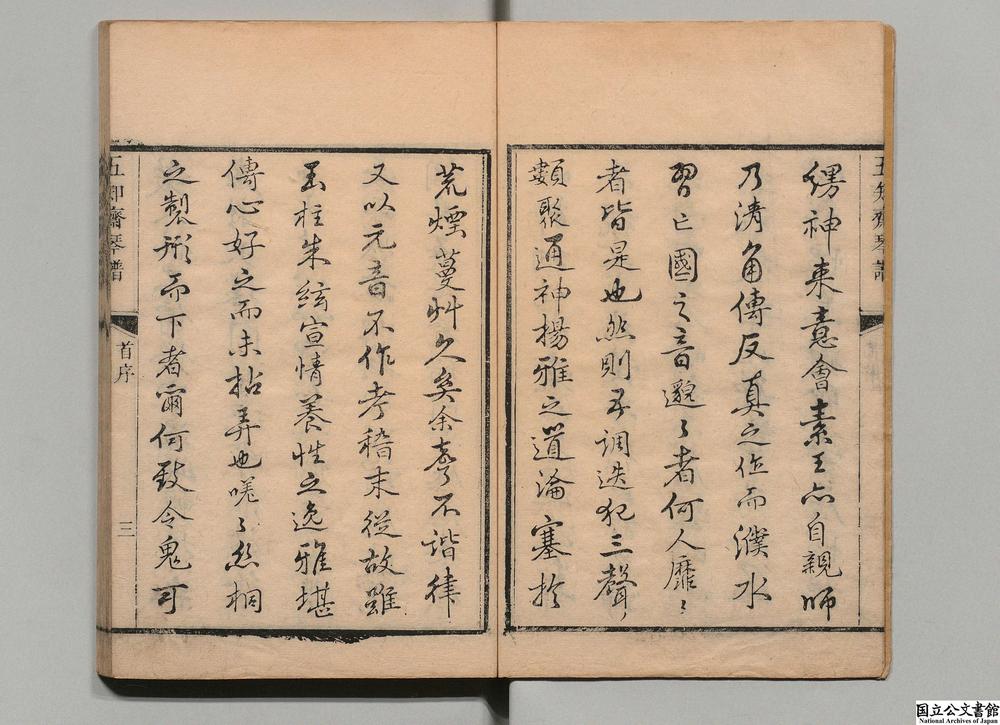 繆神來意會素王亦自親師
乃清角傳反真之作而濮水
習亡國之音邈々者何人靡々
者皆是也然則五調迭犯三聲
類聚通神揚雅之道淪塞於
五知齋琴譜
荒煙蔓艸久矣余耆不諧律
又以元音不作考稽末從故雖
玉柱朱絃宣情養性之逸雅堪
傳心好之而未拈弄也嗟々絲桐
之製形而下者爾何致令鬼可
五知齋琴譜
首序
三
国立公文書館
National Archives of Japan